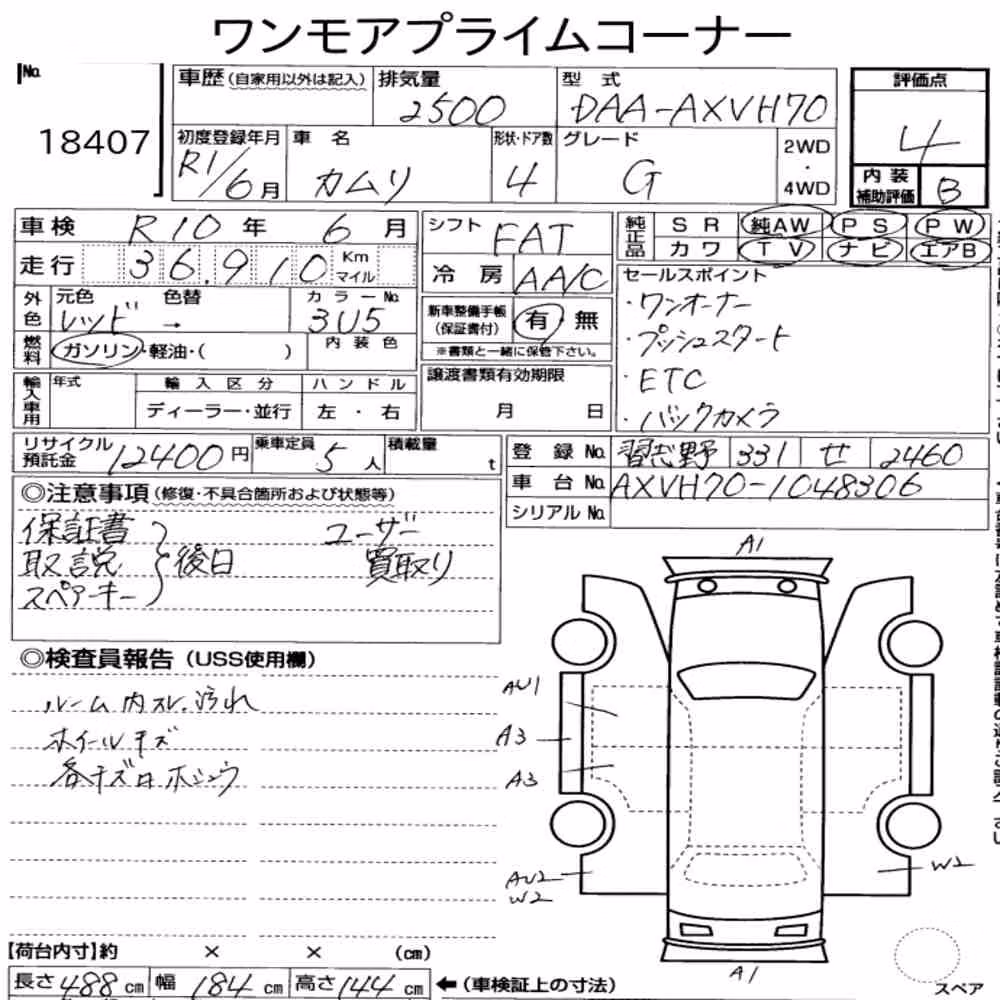 ワンモアプライムコーナー
No.
18407
車歴 (自家用以外は記入)
排気量
2500
型式
DAA-AXVH70
評価点
4
初度登録年月
R1/6月
車名
カムリ
形状・ドア数
4
グレード
G
2WD
・
4WD
内装補助評価
B
車検 R10年 6月
走行 36,910 Km マイル
外色
元色
レッド
色替
→
カラーNo.
3U5
燃料
ガソリン・軽油・( )
内装色
輸入車用
年式
輸入区分
ディーラー・並行
ハンドル
左・右
シフト FAT
冷房 AA/C
新車整備手帳
(保証書付)
有 無
※書類と一緒に保管下さい。
譲渡書類有効期限
月 日
純正品
SR 純AW PS PW
カワ TV ナビ エアB
セールスポイント
・ワンオーナー
・プッシュスタート
・ETC
・バックカメラ
リサイクル預託金 12400円
乗車定員 5人
積載量 t
登録No. 習志野 331 せ 2460
車台No. AXVH70-1048306
シリアルNo.
◎注意事項 (修復・不具合箇所および状態等)
保証書
取説
スペアキー
後日
ユーザー
買取り
◎検査員報告 (USS使用欄)
ルーム内スレ、汚れ
ホイールキズ
各キズ有 ホシュウ
A1
AU1
A3
A3
AU2
W2
W2
A1
スペア
【荷台内寸】約 × × (cm)
長さ 488 cm 幅 184 cm 高さ 144 cm ←(車検証上の寸法)